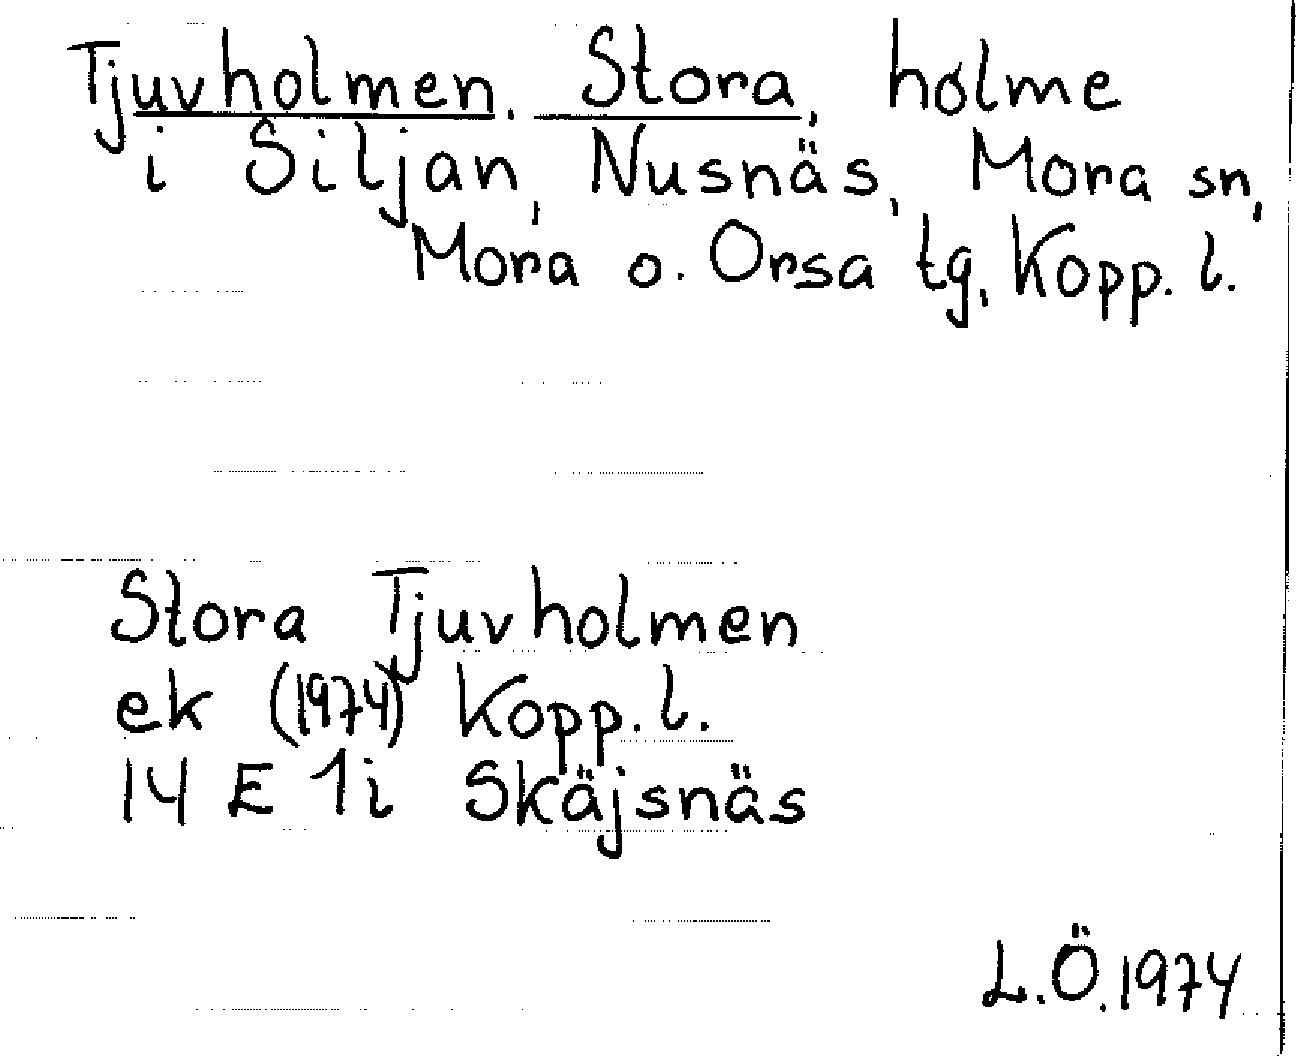 Tjuvholmen, Stora, holme
i Siljan, Nusnäs, Mora sn,
Mora o. Orsa tg, Kopp. l.
Stora Tjuvholmen
ek (1974) Kopp. l.
14 E 1i Skäjsnäs
L.Ö. 1974